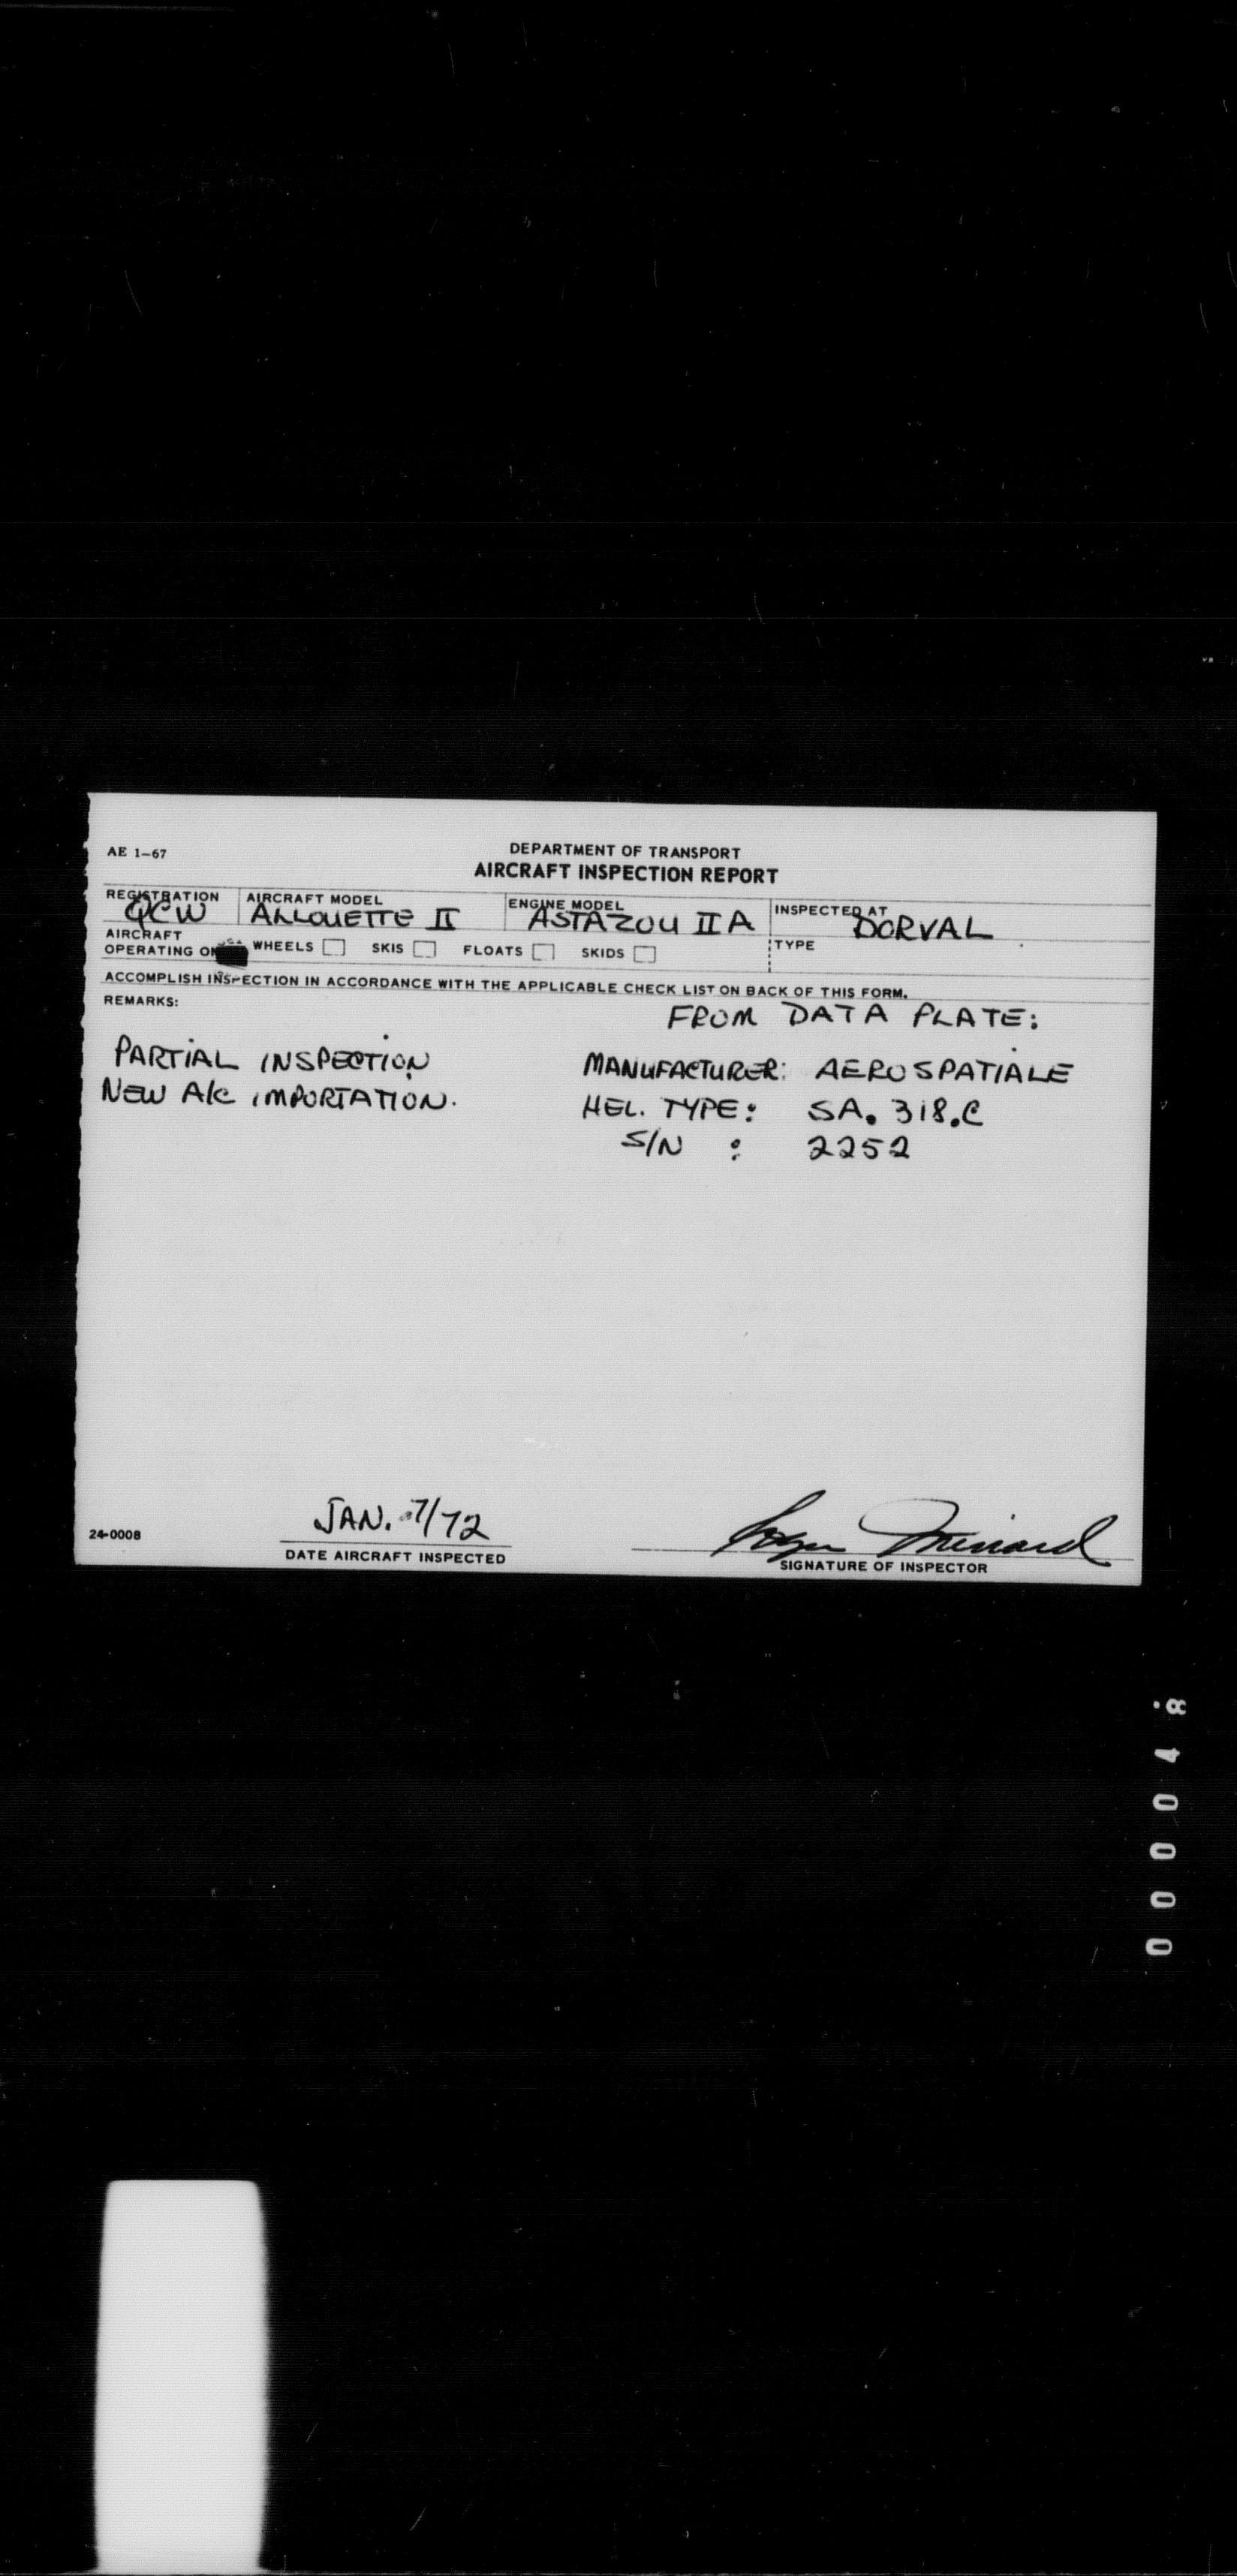 AE 1-67
DEPARTMENT OF TRANSPORT
AIRCRAFT INSPECTION REPORT
REGISTRATION AIRCRAFT MODEL ENGINE MODEL INSPECTED AT
QCW ALLOUETTE II ASTAZOU II A DORVAL
AIRCRAFT
OPERATING ON WHEELS SKIS FLOATS SKIDS TYPE
ACCOMPLISH INSPECTION IN ACCORDANCE WITH THE APPLICABLE CHECK LIST ON BACK OF THIS FORM.
REMARKS:
FROM DATA PLATE:
PARTIAL INSPECTION MANUFACTURER: AEROSPATIALE
NEW A/C IMPORTATION. HEL. TYPE: SA. 318.C
S/N : 2252
JAN. 7/72
24-0008
DATE AIRCRAFT INSPECTED
SIGNATURE OF INSPECTOR
000048